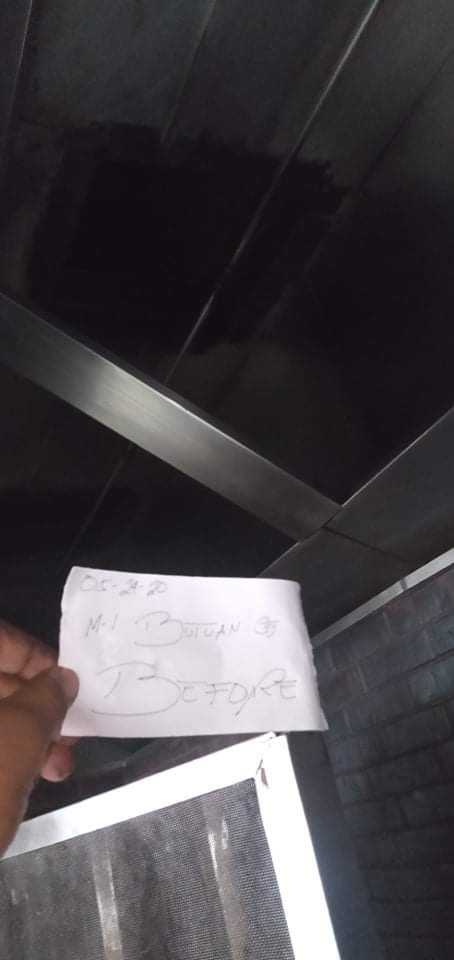 05-24-20
M-1 BUTUAN
BEFORE